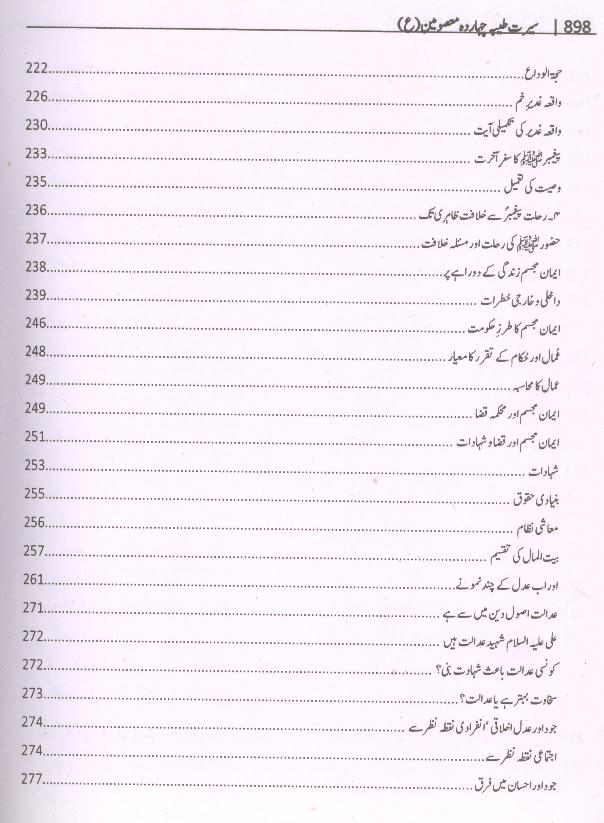 898 | سیرت طیبہ چہاردہ معصومین (ع)
حجۃ الوداع....222
واقعہ غدیر خم....226
واقعہ غدیر کی تکمیلی آیت....230
پیغمبر ﷺ کا سفر آخرت....233
وصیت کی تکمیل....235
۴۔ رحلت پیغمبرؐ سے خلافت ظاہری تک....236
حضور ﷺ کی رحلت اور مسئلہ خلافت....237
ایمان مجسم زندگی کے دوراہے پر....238
داخلی و خارجی خطرات....239
ایمان مجسم کا طرز حکومت....246
عُمال اور حُکام کے تقرر کا معیار....248
عمال کا محاسبہ....249
ایمان مجسم اور محکمہ قضا....249
ایمان مجسم اور قضا و شہادات....251
شہادات....253
بنیادی حقوق....255
معاشی نظام....256
بیت المال کی تقسیم....257
اور اب عدل کے چند نمونے....261
عدالت اصول دین میں سے ہے....271
علی علیہ السلام شہید عدالت ہیں....272
کونسی عدالت باعث شہادت بنی؟....272
سخاوت بہتر ہے یا عدالت؟....273
جود اور عدل اخلاقی ' انفرادی نقطہ نظر سے....274
اجتماعی نقطہ نظر سے....274
جود اور احسان میں فرق....277